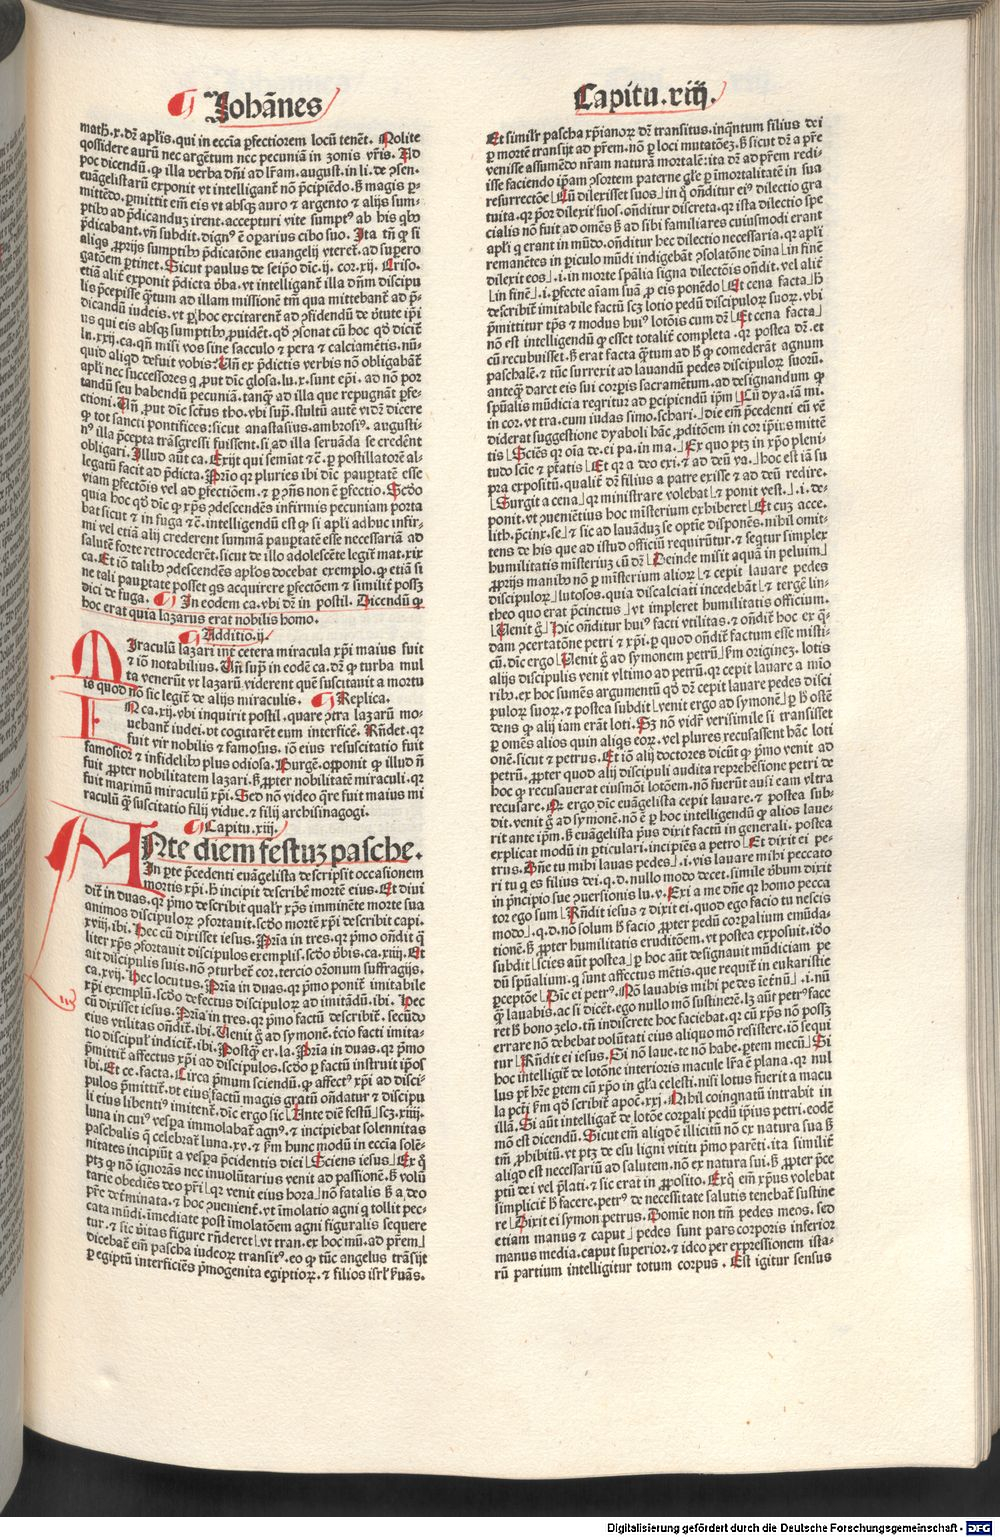 Johãnes
Capitu.xiij.
math̃.x.dr̃ apl̃is.qui in eccl̃ia ꝑfectiorem locũ tenẽt. Nolite
qossidere aurũ nec argẽtum nec pecuniã in zonis vr̃is. Ad
poc dicendũ.ꝙ illa verba dñi ad lr̃am.august.in li.de ꝯsen.
euãgelistarũ exponit vt intelligant̃ nõ p̃cipiẽdo.ß magis ꝑ-
mittẽdo.ꝑmittit em̃ eis vt absqꝫ auro ⁊ argento ⁊ alijs sum-
ptibꝰ ad p̃dicanduꝫ irent.accepturi vite sumptꝰ ab his qbꝰ
p̃dicabant.vñ subdit.dignꝰ ẽ oꝑarius cibo suo. Ita tñ ꝙ si
aliqs ꝓprijs sumptibꝰ p̃dicatõne euangelij vteret̃.ad suꝑero
gatõem ꝑtinet. Sicut paulus de seip̃o dic̃.ij. cor.xij. Criso.
etiã alit̃ exponit p̃dicta v̓ba.vt intelligant̃ illa dñm discipu
lis p̃cepisse q̃tum ad illam missionẽ tm̃ qua mittebant̃ ad p̃-
dicandũ iudeis.vt ꝑ hoc excitarent̃ ad ꝯfidendũ de v̓tute ip̃i
us qui eis absqꝫ sumptibꝰ ꝓuidet̃.qđ ꝯsonat cũ hoc qđ dicit̃
lu.xxij.ca.qñ misi vos sine sacculo ⁊ pera ⁊ calciamẽtis.nũ-
quid aliqd defuit vobis: Vñ ex p̃dictis verbis nõ obligabãt̃
apl̃i nec successores q ꝓut dic̃ glosa.lu.x.sunt ep̃i. ad nõ por
tandũ seu habendũ pecuniã.tanqꝫ ad illa que repugnãt ꝑfe-
ctioni. Vñ ꝓut dic̃ sct̃us tho.vbi sup̃.stultũ autẽ vidr̃ dicere
ꝙ tot sancti pontifices:sicut anastasius.ambrosiꝰ.augusti-
nꝰ illa p̃cepta trãsgressi fuissent.si ad illa seruãda se credẽt
obligari. Illud aũt ca. Exijt qui semiat ⁊c̃.ꝑ postillatorẽ al-
legatũ facit ad p̃dicta. Prĩo qꝛ pluries ibi dic̃ pauꝑtatẽ esse
viam ꝑfectõis vel ad ꝑfectiõem.⁊ ꝑ ꝯñs non ẽ ꝑfectio. Scđo
quia hoc qđ dic̃ ꝙ xp̃s ꝯdescendẽs infirmis pecuniam porta
bat sicut ⁊ in fuga ⁊c̃.intelligendũ est ꝙ si apl̃i adhuc infir-
mi vel etiã alij crederent summã pauꝑtatẽ esse necessariã ad
salutẽ forte retrocederẽt.sicut de illo adolescẽte legit̃ mat.xix
ca. Et iõ talibꝰ ꝯdescendẽs apl̃os docebat exemplo.ꝙ etiã si
ne tali pauꝑtate posset qs acquirere ꝑfectõem ⁊ similit̃ possꝫ
dici de fuga. In eodem ca.vbi dr̃ in postil. Dicendũ ꝙ
hoc erat quia lazarus erat nobilis homo.
Additio.ij.
MIraculũ lazari int̃ cetera miracula xp̃i maius fuit
⁊ iõ notabilius. Vñ sup̃ in eodẽ ca.dr̃ ꝙ turba mul
ta venerũt vt lazarũ viderent quẽ suscitauit a mortu
is quod nõ sic legit̃ de alijs miraculis. Replica.
EN ca.xij.vbi inquirit postil.quare ꝯtra lazarũ mo-
uebant̃ iudei.vt cogitarẽt eum interfice̓. Rñdet.qꝛ
fuit vir nobilis ⁊ famosus.iõ eius resuscitatio fuit
famosior ⁊ infidelibꝰ plus odiosa. Burgẽ.opponit ꝙ illud ñ
fuit ꝓpter nobilitatem lazari.ß ꝓpter nobilitatẽ miraculi.qꝛ
fuit maximũ miraculũ xp̃i. Sed nõ video qre fuit maius mi
raculũ ꝙ suscitatio filij vidue.⁊ filij archisinagogi.
Capitu.xiij.
ANte diem festuꝫ pasche.
In ꝑte p̃cedenti euãgelista descripsit occasionem
mortis xp̃i.ß incipit describẽ mortẽ eius. Et diui
dit̃ in duas.qꝛ p̃mo describit qualr̃ xp̃s imminẽte morte sua
animos discipuloꝝ ꝯfortauit.scđo mortẽ xp̃i describit capi.
xviij.ibi. Hec cũ dixisset iesus. Prĩa in tres.qꝛ p̃mo oñdit q̃
liter xp̃s ꝯfortauit discipulos exemplis.scđo v̓bis.ca.xiiij. Et
ait discipulis suis.nõ ꝯturbet̃ cor.tercio or̃onum suffragijs.
ca.xvij. Hec locutus. Prĩa in duas.qꝛ p̃mo ponit̃ imitabile
xp̃i exemplũ.scđo defectus discipuloꝝ ad imitãdũ.ibi. Hec
cũ dixisset iesus. Prĩa in tres.qꝛ p̃mo factũ describit̃. secũdo
eius vtilitas oñdit̃.ibi. Venit g̃ ad symonẽ.t̃cio facti imita-
tio discipul̃ indicit̃.ibi. Postqꝫ er.la. Prĩa in duas.qꝛ p̃mo
p̃mittit̃ affectus xp̃i ad discipulos.scđo ꝑ factũ instruit ip̃os
ibi. Et ce.facta. Circa p̃mum sciendũ.ꝙ affectꝰ xp̃i ad disci-
pulos p̃mittit̃.vt eius factũ magis gratũ oñdatur ⁊ discipu
li eius libentiꝰ imitent̃.dic̃ ergo sic Ante diẽ festũ scꝫ.xiiij.
luna in cuiꝰ vesꝑa immolabat̃ agnꝰ.⁊ incipiebat solennitas
paschalis q̃ celebrat̃ luna.xv.⁊ ẜm hunc modũ in eccl̃ia solẽ-
nitates incipiũt a vesꝑa p̃cidentis diei Sciens iesus Ex q̊
ptꝫ ꝙ nõ ignorãs nec inuolũtarius venit ad passionẽ.ß volũ
tarie obediẽs deo pr̃i qꝛ venit eius hora nõ fatalis ß a deo
pr̃e det̃minata.⁊ hoc ꝯuenient̃.vt imolatio agni q̃ tollit pec-
cata mũdi.imediate post imolatõem agni figuralis sequere
tur.⁊ sic v̓itas figure rñderet vt tran.ex hoc mũ.ad pr̃em
dicebat̃ em̃ pascha iudeoꝝ transitꝰ.eo ꝙ tũc angelus trãsijt
ꝑ egiptũ interficiẽs p̃mogenita egiptioꝝ.⁊ filios isrl̃ ẜuãs.
Et simil̓r pascha xp̃ianoꝝ dr̃ transitus.inq̃ntum filius dei
ꝑ mortẽ transijt ad pr̃em.nõ ꝑ loci mutatõeꝫ.ß sicut dr̃ a pr̃e
venisse assumẽdo nr̃am naturã mortalẽ:ita dr̃ ad pr̃em redi-
isse faciendo ip̃am ꝯsortem paterne gl̃e ꝑ imortalitatẽ in sua
resurrectõe Cũ dilexisset suos in q̊ oñditur eiꝰ dilectio gra
tuita.qꝛ p̃or dilexit suos.oñditur discreta.qꝛ ista dilectio spe
cialis nõ fuit ad omẽs ß ad sibi familiares cuiusmodi erant
apl̃i q erant in mũdo.oñditur hec dilectio necessaria.qꝛ apl̃i
remanẽtes in ꝑiculo mũdi indigebãt ꝯsolatõne diuĩna in finẽ
dilexit eos .i.in morte sp̃alia signa dilectõis oñdit.vel alit̃
in finẽ .i.ꝑfecte aĩam suã ꝓ eis ponẽdo Et cena facta ß
describit̃ imitabile factũ scꝫ lotio pedũ discipuloꝝ suoꝝ.vbi
p̃mittitur tp̃s ⁊ modus huiꝰ lotõis cum dr̃ Et cena facta
nõ est intelligendũ ꝙ esset totalit̃ completa.qꝛ postea dr̃.et
cũ recubuisset.ß erat facta q̃tum ad ß ꝙ comederãt agnum
paschalẽ.⁊ tũc surrexit ad lauandũ pedes discipuloꝝ suorũ.
anteqꝫ daret eis sui corꝑis sacramẽtum.ad designandum ꝙ
sp̃ualis mũdicia reqritur ad ꝑcipiendũ ip̃m Cũ dya.iã mi.
in cor.vt tra.eum iudas simo.schari. die em̃ p̃cedenti cũ vẽ
diderat suggestione dyaboli hãc ꝓditiõem in cor ip̃ius mittẽ
tis Sciẽs qꝛ oĩa de.ei pa.in ma. Ex quo ptꝫ in xp̃o pleni-
tudo scĩe ⁊ pt̃atis Et qꝛ a deo exi.⁊ ad deũ va. hoc est iã su
pra expositũ.qualit̃ dr̃ filius a patre exisse ⁊ ad deũ redire.
Surgit a cena qꝛ ministrare volebat ⁊ ponit vest. .i.de-
ponit.vt ꝯueniẽtius hoc misterium exhiberet Et cuꝫ acce.
lith.p̃cinx.se ⁊ sic ad lauãduꝫ se optie disponẽs.nihil omit-
tens de his que ad istud officiũ requirũtur.⁊ seq̃tur simplex
humilitatis misteriuꝫ cũ dr̃ Deinde misit aquã in peluim
ꝓprijs manibꝰ nõ ꝑ misterium alioꝝ ⁊ cepit lauare pedes
discipuloꝝ lutosos.quia discalciati incedebãt ⁊ tergẽ lin-
theo quo erat p̃cinctus vt impleret humilitatis officium.
Venit g̃ Hic oñditur huiꝰ facti vtilitas.⁊ oñdit̃ hoc ex q̃-
dam ꝯcertatõne petri ⁊ xp̃i.ꝑ quod oñdit̃ factum esse misti-
cũ.dic̃ ergo Venit g̃ ad symonem petrũ ẜm originẽꝫ.lotis
alijs discipulis venit vltimo ad petrũ.qꝛ cepit lauare a mio
ribꝰ.ex hoc sumẽs argumentũ qđ dr̃ cepit lauare pedes disci
puloꝝ suoꝝ.⁊ postea subdit venit ergo ad symonẽ ꝑ ß ostẽ
dens ꝙ alij iam erãt loti. Sꝫ nõ vidr̃ verisimile si transisset
ꝑ omẽs alios quin aliqs eoꝝ.vel plures recusassent hãc loti
onẽ.sicut ⁊ petrus. Et iõ alij doctores dicũt ꝙ p̃mo venit ad
petrũ.ꝓpter quod alij discipuli audita reprehẽsione petri de
hoc ꝙ recusauerat eiusmõi lotõem.nõ fuerũt ausi eam vltra
recusare. Qꝛ ergo dic̃ euãgelista cepit lauare.⁊ postea sub-
dit.venit g̃ ad symonẽ.nõ ẽ ꝑ hoc intelligendũ ꝙ alios laue-
rit ante ip̃m.ß euãgelista p̃us dixit factũ in generali.postea
explicat modũ in ꝑticulari.incipiẽs a petro Et dixit ei pe-
trus. Dñe tu mihi lauas pedes .i.vis lauare mihi peccato
ri tu q̃ es filius dei.q.d.nullo modo decet.simile v̓bum dixit
in p̃ncipio sue ꝯuersionis lu.v. Exi a me dñe qꝛ homo pecca
tor ego sum Rñdit iesus ⁊ dixit ei.quod ego facio tu nescis
modo .q.d.nõ solum ß facio ꝓpter pedũ corꝑalium emũda-
tionẽ.ß ꝓpter humilitatis eruditõem.vt postea exposuit.iđo
subdit scies aũt postea ꝑ hoc aũt designauit mũdiciam pe
dũ sp̃ualium.q̃ sunt affectus mẽtis.que requirit̃ in eukaristie
ꝑceptõe Dic̃ ei petrꝰ. Nõ lauabis mihi pedes ĩet̃nũ .i.nũ
qꝫ lauabis.ac si dicẽt.ego nullo mõ sustinerẽ.lꝫ aũt petrꝰ face
ret ß bono zelo.tñ indiscrete hoc faciebat.qꝛ cũ xp̃s nõ possꝫ
errare nõ debebat volũtati eius aliquo mõ resistere.iõ sequi
tur Rñdit ei iesus. Si nõ laue.te nõ habe.ꝑtem mecũ Si
hoc intelligit̃ de lotõne interioris macule lr̃a ẽ plana.qꝛ nul
lus pt̃ hr̃e ꝑtem cũ xp̃o in gl̃a celesti.nisi lotus fuerit a macu
la pct̃i ẜm qđ scribit̃ apoc̃.xxj. Nihil coinqnatũ intrabit in
illã. Si aũt intelligat̃ de lotõe corꝑali pedũ ip̃ius petri.eodẽ
mõ est dicendũ. Sicut em̃ aliqd ẽ illicitũ nõ ex natura sua ß
tm̃ ꝓhibitũ.vt ptꝫ de esu ligni vititi p̃mo parẽti.ita similit̃
aliqd est necessariũ ad salutem.nõ ex natura sui.ß ꝓpter p̃ce
ptũ dei vel p̃lati.⁊ sic erat in ꝓposito. Exq̊ em̃ xp̃us volebat
simplicit̃ ß facere.petrꝰ de necessitate salutis tenebat̃ sustine
re Dixit ei symon petrus. Domĩe non tm̃ pedes meos.sed
etiam manus ⁊ caput pedes sunt pars corporis inferior
manus media.caput superior.⁊ ideo per expressionem ista-
rũ partium intelligitur totum corpus. Est igitur sensus
Digitalisierung gefördert durch die Deutsche Forschungsgemeinschaft - DFG